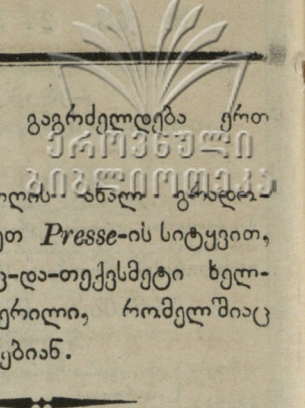 გაგრძელდება ერთ
ეროვნული
ბიბლიოთეკა
ლის ახალ გრადო-
ეთ Presse-ის სიტყვით,
ც-და-თექვსმეტი ხელ-
ერილი, რომელშიაც
ებიან.